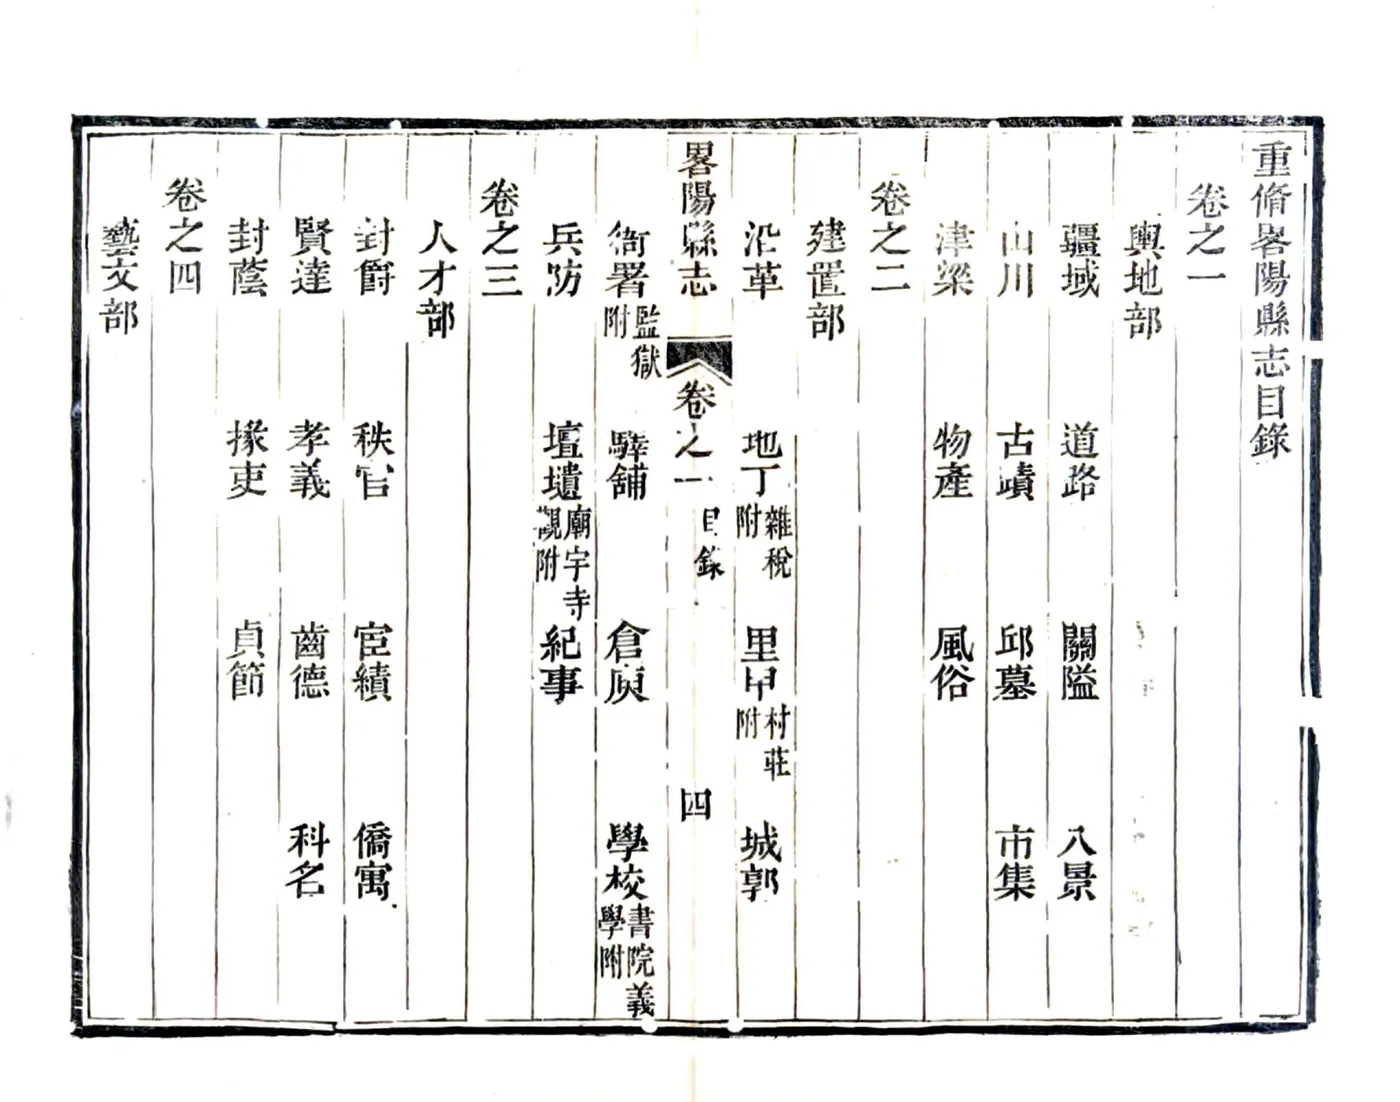 重脩畧陽縣志目錄
卷之一
輿地部
疆域 道路 關隘 八景
山川 古蹟 邱墓 市集
津梁 物產 風俗
卷之二
建置部
沿革 地丁雜稅附 里甲村莊附 城郭
畧陽縣志 卷之一 目錄 四
衙署監獄附 驛舖 倉庾 學校書院義學附
兵防 壇壝廟宇寺觀附 紀事
卷之三
人才部
封爵 秩官 宦績 僑寓
賢達 孝義 齒德 科名
封蔭 掾吏 貞節
卷之四
藝文部